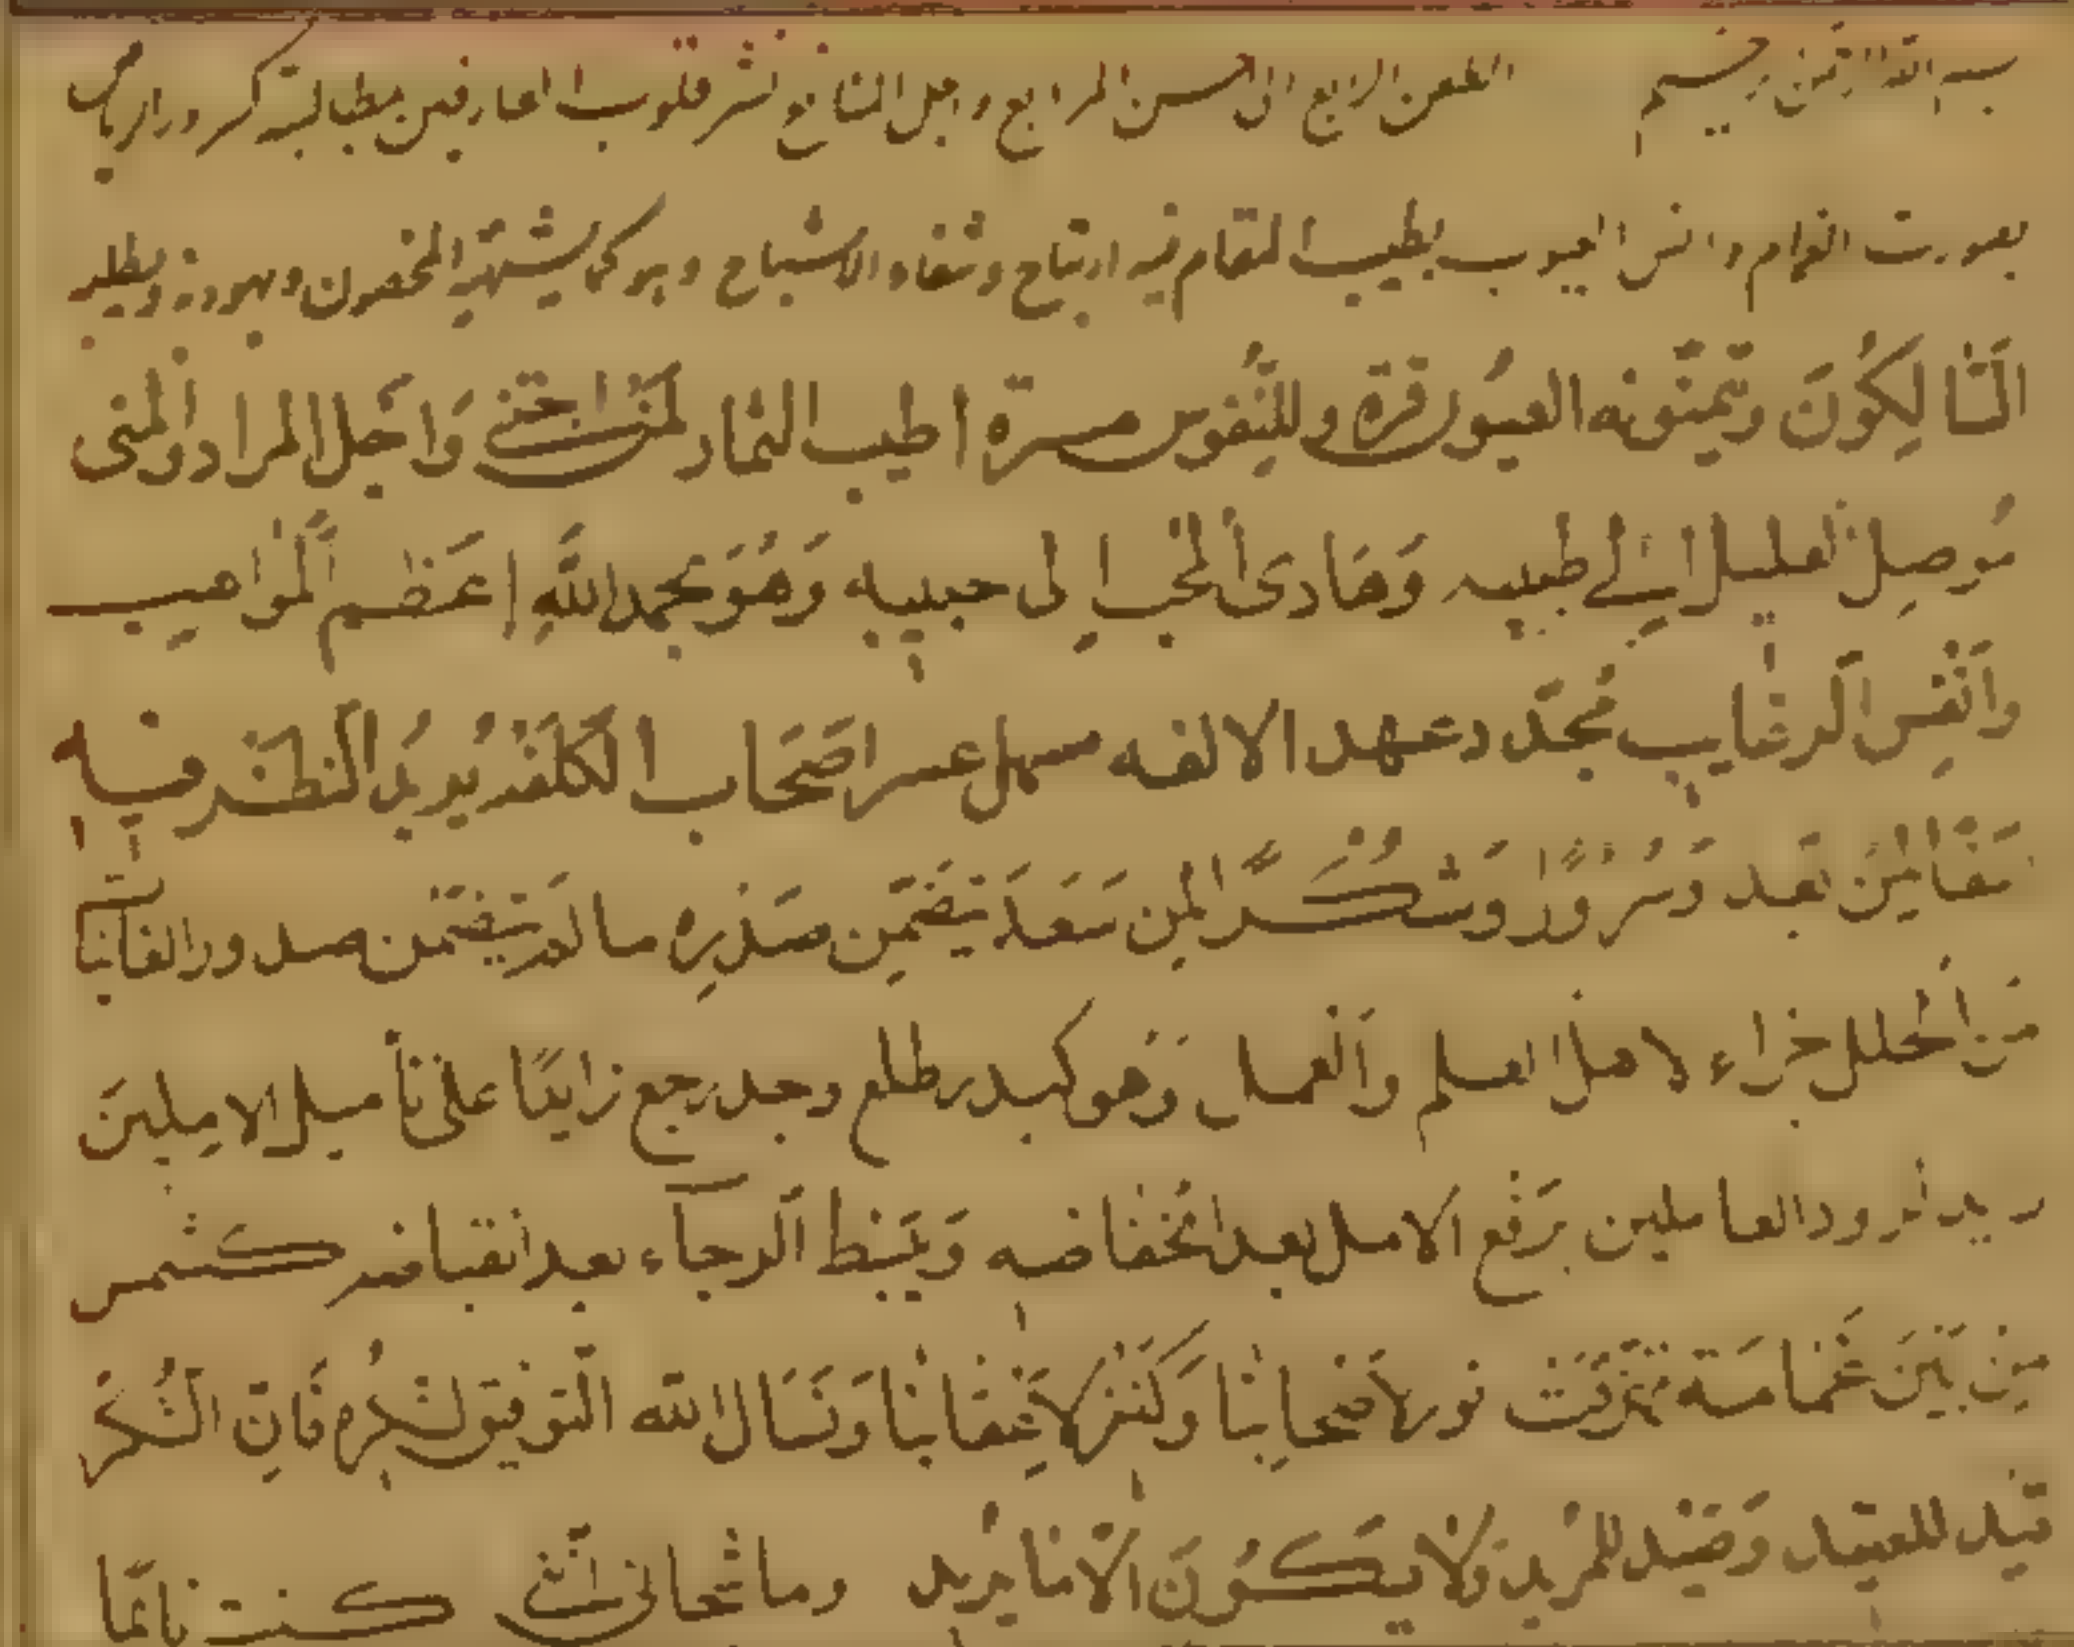 بسم الله الرحمن رحيم الطعن الرابع الى احسن المرابع واجل الشايع نشر قلوب العارفين بمطالبة كر
بصورت اقوام وانس العيوب بطيب المقام فيه ارتياح وشفاء والاشباح وهو كى يشتهيه المخصرون ويهودونه
السالكون ويتمنونه العيون قرة وللنفوس مسرة اطيب الثمار لمن اجتنى واجل المراد والمنى
موصل العليل الي طبيبه وهادى المحب الى حبيبه وهو بحمد الله اعظم المواهب
وانفس الرغايب مجدد عهد الالفه سهل عسر اصحاب الكلفه يريد النظر فيه
لمن بعد وسرورا وشكرا لمن سعد يتضمن صدره ما لم يتضمن صدور الغانيات
من الحلل جزاء لاهل العلم والعمل وهو كبدر طلع وجد رجع زايدا على تأميل الاملين
العاملين يرفع الامل بعد انخفاضه ويبسط الرجاء بعد انقباضه كشمس
من بين غمامة تمزقت نور لاصحابنا وكنز لاعقابنا ونسال الله التوفيق لشكره فان الشكر
قيد للعتيد وصيد للمزيد ولا يكون الا ما يريد وما شجانى اننى كنت نائما